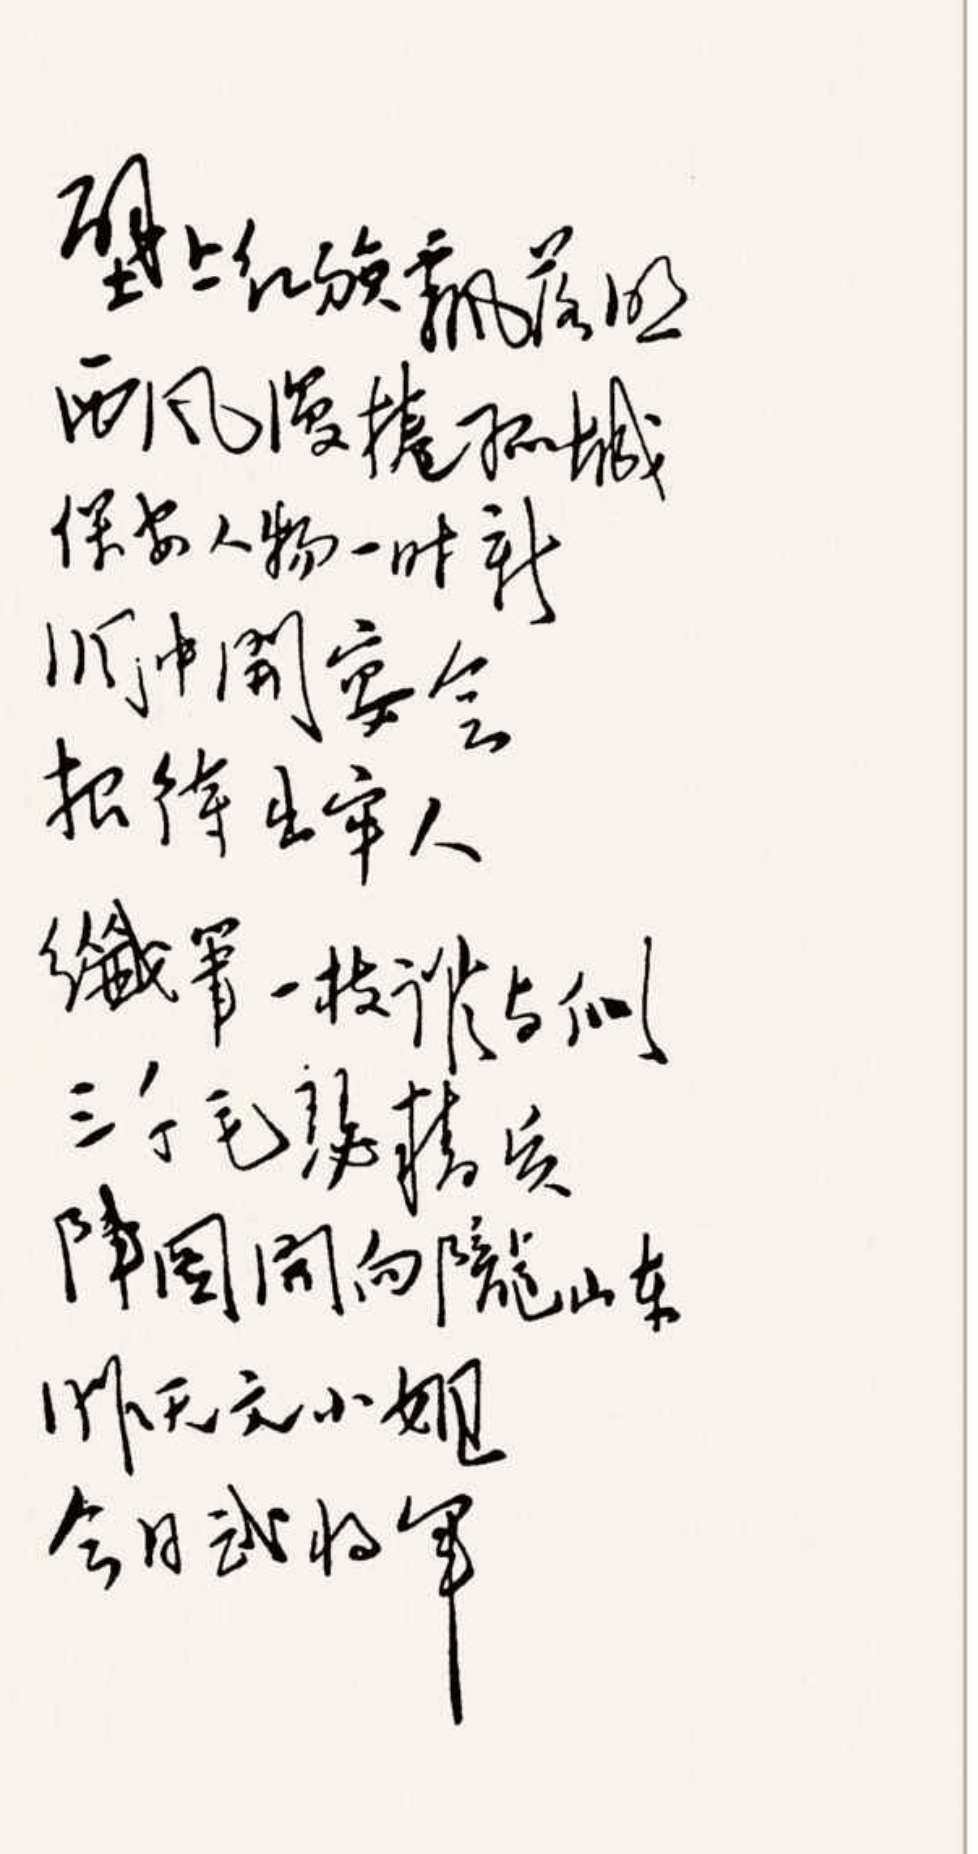 壁上红旗飄落照
西风漫捲孤城
保安人物一时新
洞中開宴会
招待出牢人
纖筆一枝誰与似
三千毛瑟精兵
阵图開向隴山东
昨天文小姐
今日武将军